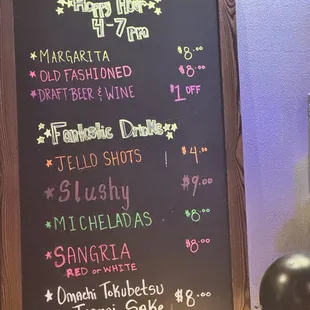 Happy Hour
4-7 pm
MARGARITA $8.00
OLD FASHIONED $8.00
DRAFT BEER & WINE $1 OFF
Fantastic Drinks
JELLO SHOTS $4.00
Slushy $9.00
MICHELADAS $8.00
SANGRIA $8.00
RED or WHITE
Omachi Tokubetsu $8.00
Sake